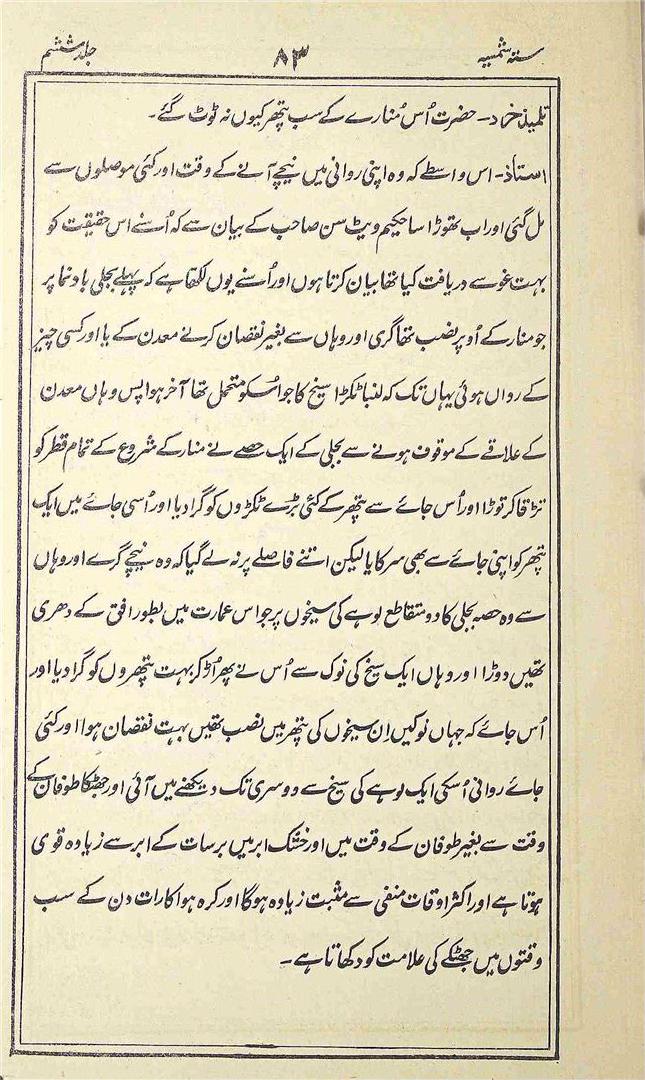 ستہ شمسیہ ۸۳ جلد ششم
تلمیذ خرد۔ حضرت اُس مُنارے کے سب پتھر کیوں نہ ٹوٹ گئے۔
استاذ۔ اس واسطے کہ وہ اپنی روانی میں نیچے آنے کے وقت اور کئی موصلوں سے
مل گئی اور اب تھوڑا سا حکیم ویٹ سن صاحب کے بیان سے کہ اُسنے اس حقیقت کو
بہت غو سے دریافت کیا تھا بیان کرتا ہوں اور اُسنے یوں لکھا ہے کہ پہلے بجلی بادنما پر
جو منار کے اُوپر نصب تھا گری اور وہاں سے بغیر نقصان کرنے معدن کے یا اور کسی چیز
کے رواں ہوئی یہاں تک کہ لنبا ٹکڑا سیخ کا جو اسکو متحمل تھا آخر ہوا پس وہاں معدن
کے علاقے کے موقوف ہونے سے بجلی کے ایک حصے نے منار کے مشروع کے تمام قطر کو
تڑقا کر توڑا اور اُس جائے سے پتھر کے کئی بڑے ٹکڑوں کو گرا دیا اور اُسی جائے میں ایک
پتھر کو اپنی جائے سے بھی سرکایا لیکن اتنے فاصلے پر نہ لے گیا کہ وہ نیچے گرے اور وہاں
سے وہ حصہ بجلی کا دو متقاطع لوہے کی سیخوں پر جو اس عمارت میں بطور افق کے دھری
تھیں دوڑا اور وہاں ایک سیخ کی نوک سے اُس نے پھر اُڑ کر بہت پتھروں کو گرا دیا اور
اُس جائے کہ جہاں نوکیں اِن سیخوں کی پتھر میں نصب تھیں بہت نقصان ہوا اور کئی
جائے روانی اُسکی ایک لوہے کی سیخ سے دوسری تک دیکھنے میں آئی اور جھٹکا طوفان کے
وقت سے بغیر طوفان کے وقت میں اور خشک ابر میں برسات کے ابر سے زیادہ قوی
ہوتا ہے اور اکثر اوقات منفی سے مثبت زیادہ ہوگا اور کرہ ہوا کا رات دن کے سب
وقتوں میں جھٹکے کی علامت کو دکھاتا ہے۔